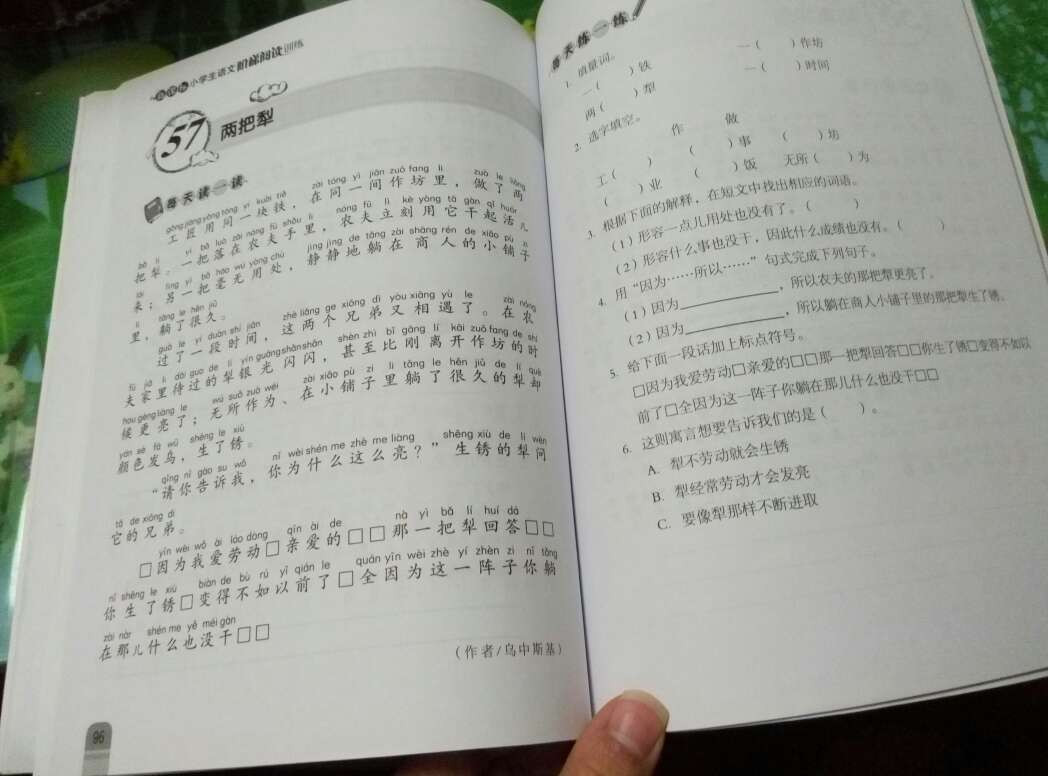 新课标小学生语文阶梯阅读训练
57 两把犁
每天读一读
gōng jiàng yòng tóng yí kuài tiě zài tóng yì jiān zuō fang li zuò le liǎng
工匠用同一块铁，在同一间作坊里，做了两
bǎ lí yì bǎ luò zài nóng fū shǒu li nóng fū lì kè yòng tā gàn qǐ huór
把犁。一把落在农夫手里，农夫立刻用它干起活儿
lái lìng yì bǎ háo wú yòng chù jìng jìng de tǎng zài shāng rén de xiǎo pù zi
来；另一把毫无用处，静静地躺在商人的小铺子
li tǎng le hěn jiǔ
里，躺了很久。
guò le yí duàn shí jiān zhè liǎng ge xiōng dì yòu xiāng yù le zài nóng
过了一段时间，这两个兄弟又相遇了。在农
fū jiā li dāi guo de lí yín guāng shǎn shǎn shèn zhì bǐ gāng lí kāi zuō fang de shí
夫家里待过的犁银光闪闪，甚至比刚离开作坊的时
hou gèng liàng le wú suǒ zuò wéi zài xiǎo pù zi li tǎng le hěn jiǔ de lí què
候更亮了；无所作为、在小铺子里躺了很久的犁却
yán sè fā wū shēng le xiù
颜色发乌，生了锈。
qǐng nǐ gào su wǒ nǐ wèi shén me zhè me liàng shēng xiù de lí wèn
“请你告诉我，你为什么这么亮？”生锈的犁问
tā de xiōng dì
它的兄弟。
yīn wèi wǒ ài láo dòng qīn ài de nà yì bǎ lí huí dá
□因为我爱劳动□亲爱的□□那一把犁回答□□
nǐ shēng le xiù biàn de bù rú yǐ qián le quán yīn wèi zhè yí zhèn zi nǐ tǎng
你生了锈□变得不如以前了□全因为这一阵子你躺
zài nàr shén me yě méi gàn
在那儿什么也没干□□
（作者/乌申斯基）
96
每天练一练
1. 填量词。
一（ ）铁 一（ ）作坊
两（ ）犁 一（ ）时间
2. 选字填空。
作 做
工（ ） （ ）事 （ ）坊
（ ）业 （ ）饭 无所（ ）为
3. 根据下面的解释，在短文中找出相应的词语。
（1）形容一点儿用处也没有了。（ ）
（2）形容什么事也没干，因此什么成绩也没有。（ ）
4. 用“因为……所以……”句式完成下列句子。
（1）因为____________，所以农夫的那把犁更亮了。
（2）因为____________，所以躺在商人小铺子里的那把犁生了锈。
5. 给下面一段话加上标点符号。
□因为我爱劳动□亲爱的□□那一把犁回答□□你生了锈□变得不如以
前了□全因为这一阵子你躺在那儿什么也没干□□
6. 这则寓言想要告诉我们的是（ ）。
A. 犁不劳动就会生锈
B. 犁经常劳动才会发亮
C. 要像犁那样不断进取